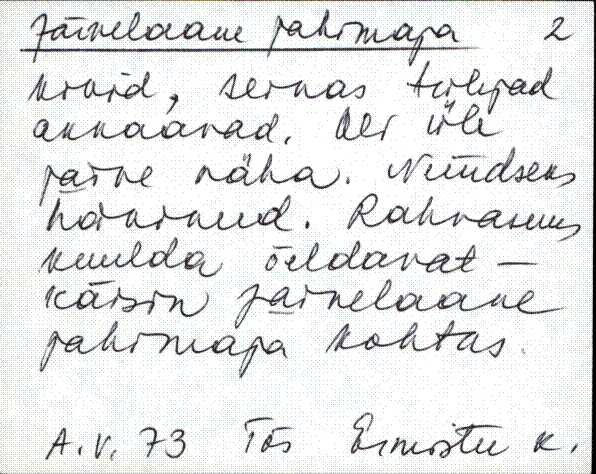 Järvelaane jahimaja 2
kivid, seinas tulijad
aknaavad. Oli üle
järve näha. Nüüdseks
hävinud. Rahvasuus
kuulda öeldavat –
käisin Järvelaane
jahimaja kohtas.
A.V. 73 Tõs Ermistu k.